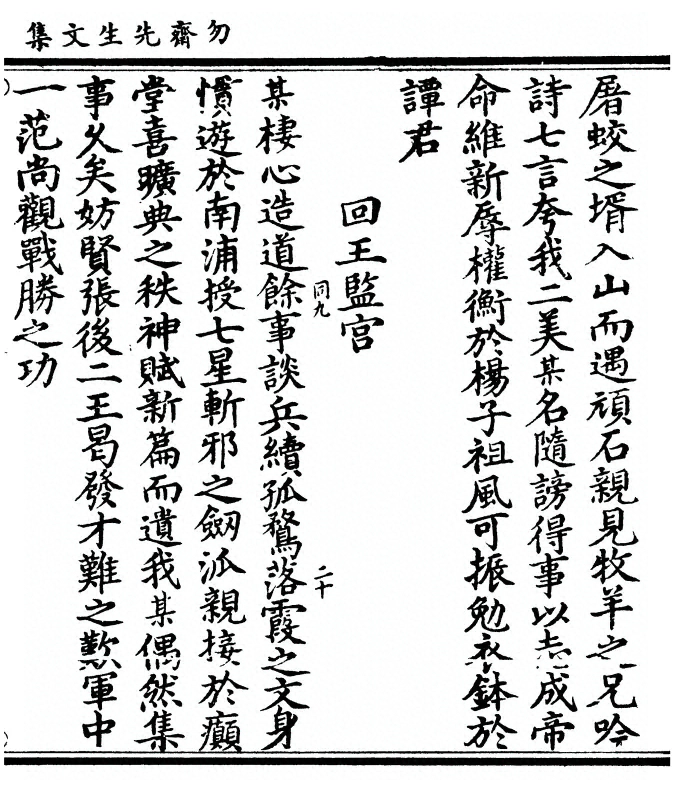 勿齋先生文集
屠蛟之壻入山而遇頑石親見牧羊之兄吟
詩七言夸我二美某名隨謗得事以志成帝
命維新辱權衡於楊子祖風可振勉衣鉢於
譚君
回王監宮
某棲心造道餘事談兵續孤鶩落霞之文身
慣遊於南浦授七星斬邪之劔派親接於廬
堂喜曠典之秩神賦新篇而遺我某偶然集
事久矣妨賢張後二王曷發才難之歎軍中
一范尚觀戰勝之功
同九
二十